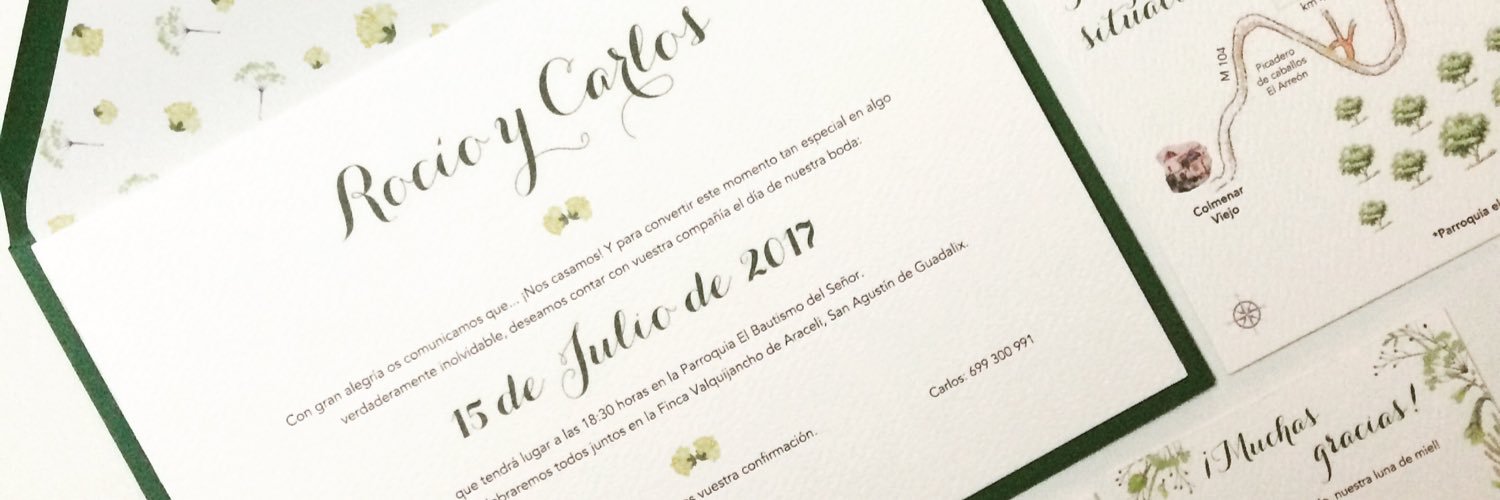 Rocío y Carlos
Con gran alegría os comunicamos que... ¡Nos casamos! Y para convertir este momento tan especial en algo
verdaderamente inolvidable, deseamos contar con vuestra compañía el día de nuestra boda:
15 de Julio de 2017
que tendrá lugar a las 18:30 horas en la Parroquia El Bautismo del Señor.
lebraremos todos juntos en la Finca Valquijancho de Araceli, San Agustín de Guadalix.
Carlos: 699 300 991
vuestra confirmación.
km
M 104
Picadero
de caballos
El Arreón
Colmenar
Viejo
*Parroquia el
¡Muchas
gracias!
nuestra luna de miel!